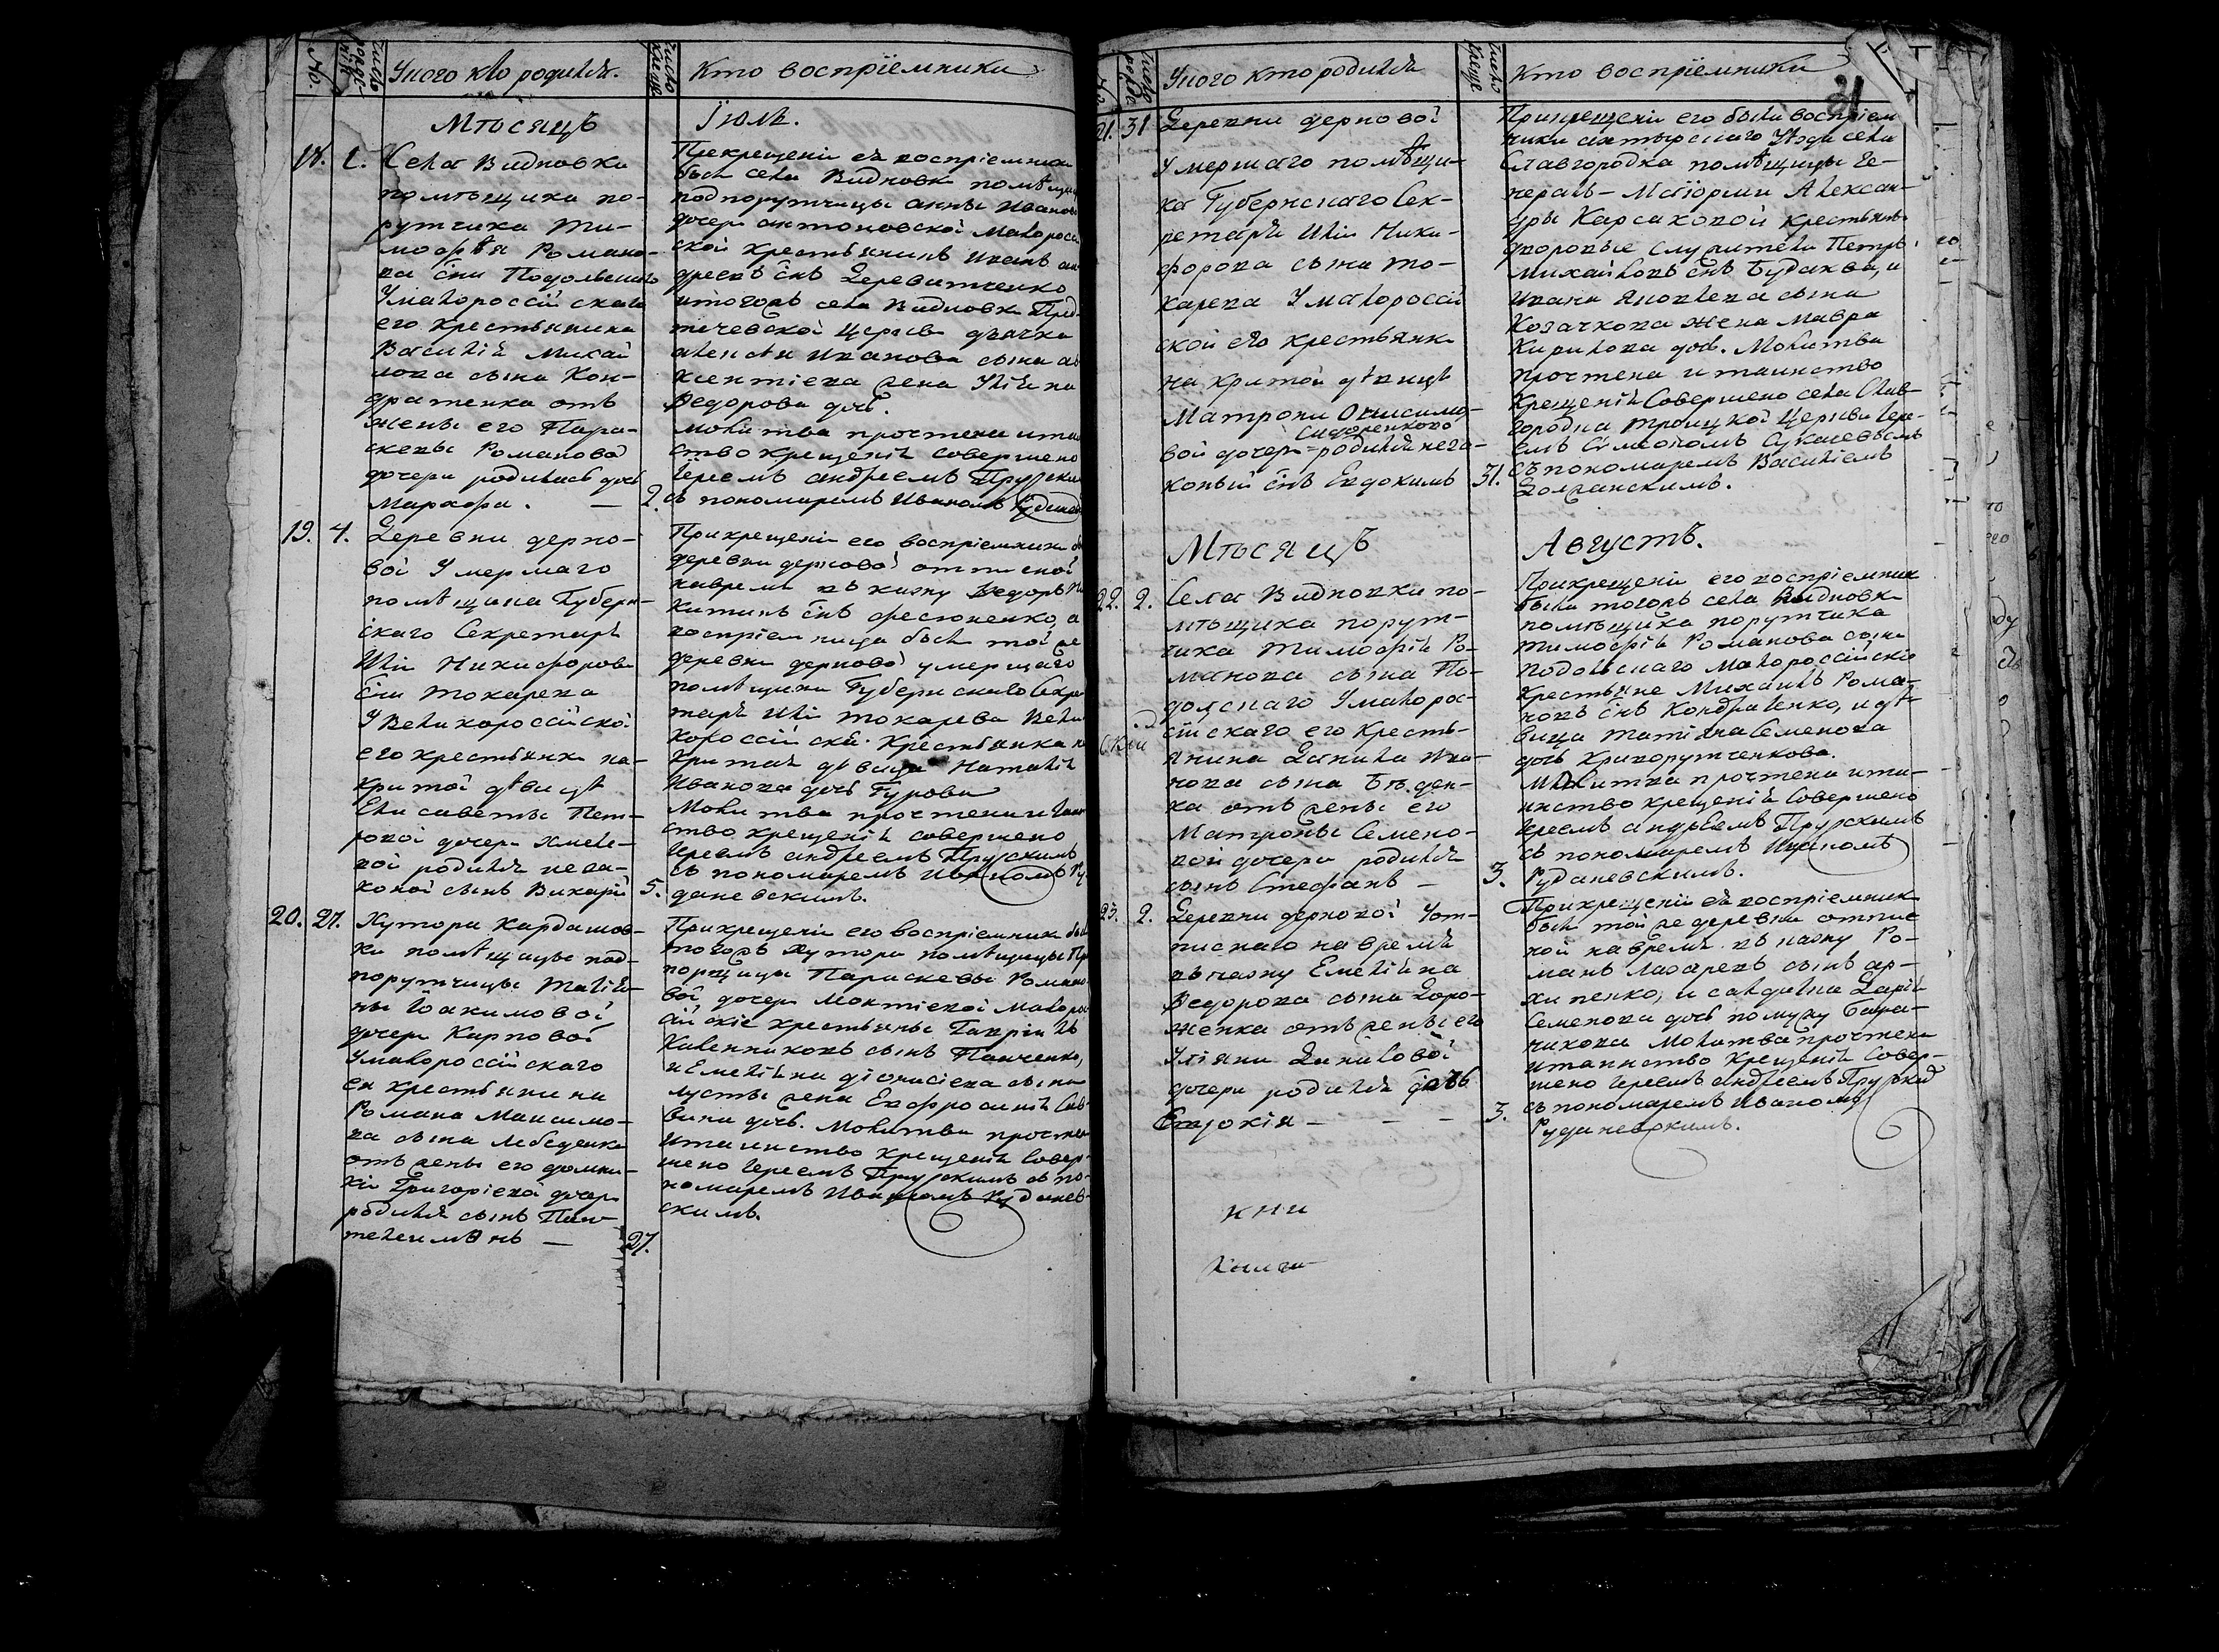 No.
Число рожде нія
Уного кто родился.
Число креще
Кто воспріемники
Мѣсяцъ
Іюль.
18. 1.
Села Видновки
помѣщика по-
рутчика Ти-
мофѣя Романо-
ва сна Подольскаго
Умалороссійскаго
его крестьянина
Василія Михай
лова сына Кон-
дратенка отъ
жены его Пара-
скевы Романова
дочери родилась дочь
Марфа. — 2.
Прекрещеніи ея воспріемники
были села Видновки помѣщи
подпорутчицы анны Иванов
дочери антоновской малоросс
ской крестьянинъ Иванъ ан
дреевъ снъ Деревятченко
итогожъ села Видновки Пред
течевской Церкви дьячка
алексѣя Иванова сына ав
ксентіева жена Уліяна
Федорова дочь.
молитва прочтена ита
ство крещенія совершено
Іереемъ андреемъ Прускимъ
съ пономаремъ Иваномъ
19. 4.
Деревни дерно-
вой Умершаго
помѣщика Губерн-
скаго Секретаря
Иліи Никифорова
сна Токарева
У Великороссійской
его крестьянки на-
критой дѣвицѣ
Елисаветы Пет-
ровой дочери Хмеле-
вой родился неза-
коной сынъ Викарій 5.
Прикрещеніи его воспріемники
деревни дерновой отписной
навремя въ казну Федоръ Ни
китинъ снъ фесюненко, а
воспріемница была той же
деревни дерновой умершаго
помѣщика Губернскаго Секре
таря Иліи Токарева Вели
короссійская крестьянка на
критая дѣвица Наталія
Иванова дочь Гурова
Молитва прочтена и таин
ство крещенія совершено
Іереемъ андреемъ Прускимъ
съ пономаремъ Иваномъ Ру
даневскимъ.
20. 27.
Хутора Кардашов-
ки помѣщицы под-
порутчицы Татія-
ны Іоакимовой
дочери Карповой
Умалороссійскаго
ея крестьянина
Романа Максимо-
ва сына Лебеденка
отъ жены его домни-
кіи Григоріевой дочери
родился сынъ Пан-
телеимѣнъ — 27.
Прикрещеніи его воспріемники были
тогожъ хутора помѣщицы Пра
порщицы Параскевы Романо
вой дочери Локтіевой малорос
сійскіе крестьяне Гавріилъ
Каленниковъ сынъ Панченко,
и Емеліяна діонисіева сына
лусты жена Евфросинія Сав
вина дочь. Молитва прочтена
итаинство крещенія совер-
шено Іереемъ Прускимъ съ по-
номаремъ Иваномъ Руданев-
скимъ.
Число рожде
Уного кто родился
Число креще
Кто воспріемники
21. 31
Деревни дерновой
Умершаго помѣщи-
ка Губернскаго Сек-
ретаря Иліи Ники-
форова сына То-
карева Умалоросій
ской его крестьянки
на критой дѣвицѣ
Матроны Онисимо-
Сидоренковой
вой дочери родился неза-
коный снъ Евдокимъ 31.
Прикрещеніи его были воспріем
ники ахтырскаго Уѣзда села
Славгородка помѣщицы Ге-
нералъ-Маіорши Алексан-
дры Карсаковой крестьяне
дворовые служители Петръ
Михайловъ снъ Будаква, и
Ивана Яковлева сына
Козачкова жена Мавра
Кирилова дочь. Молитва
прочтена и таинство
Крещенія Совершено села Слав-
городка Троицкой Церкви Іере-
емъ Симеономъ
съ пономаремъ Василіемъ
Должанскимъ.
Мѣсяцъ
Августъ.
22. 2.
Села Видновки по-
мѣщика порут-
чика Тимофѣя Ро-
манова сына По-
долскаго Умалорос-
сійскаго его Кресть-
янина Данила Ива-
нова сына Бѣден-
ка отъ жены его
Матроны Семено-
вой дочери родился
сынъ Стефанъ — 3.
Прикрещеніи его воспріемники
были тогожъ села Видновки
помѣщика порутчика
тимофѣя Романова сына
подольскаго малороссійскіе
крестьяне Михаилъ Рома-
новъ снъ Кондратенко, и дѣ-
вица Татіяна Семенова
дочь Криворутченкова.
Молитва прочтена ита-
инство крещенія Совершено
Іереемъ андреемъ Прускимъ
съ пономаремъ Иваномъ
Руданевскимъ.
23. 2.
Деревни дерновой Уот-
писнаго на время
въ казну Емеліяна
Федорова сына Доро-
женка отъ жены его
Уліяны Даниловой
дочери родился дочь
Евдокія — — — 3.
Прикрещеніи ея воспріемники
были той же деревни отпис
ной навремя въ казну Ро-
манъ Лазаревъ сынъ ар-
хипенко, и салдатка Дарія
Семенова дочь по мужу Бара-
никова Молитва прочтена
итаинство крещенія Совер-
шено Іереемъ андреемъ Прускимъ
съ пономаремъ Иваномъ
Руданевскимъ.
кни